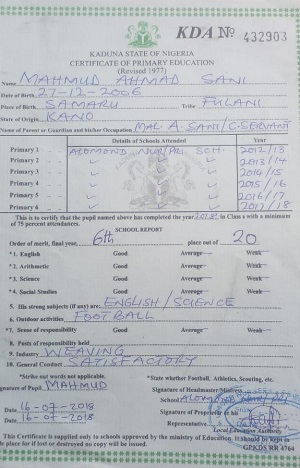 KDA No 432903
KADUNA STATE OF NIGERIA
CERTIFICATE OF PRIMARY EDUCATION
(Revised 1977)
Name MAHMUD AHMAD SANI
Date of Birth 27-12-2006
Place of Birth SAMARU Tribe FULANI
State of Origin KANO
Name of Parent or Guardian and his Occupation MAL. A. SANI / C. SERVANT
Details of Schools Attended Year
Primary 1 ALOMOND NUR/PRI SCH. 2012/13
Primary 2 2013/14
Primary 3 2014/15
Primary 4 2015/16
Primary 5 2016/17
Primary 6 2017/18
This is to certify that the pupil named above has completed the year 2018 in Class 6 with a minimum
of 75 percent attendances.
SCHOOL REPORT
Order of merit, final year, 6th place out of 20
*1. English Good Average Weak
*2. Arithmetic Good Average Weak
*3. Science Good Average Weak
*4. Social Studies Good Average Weak
5. His strong subjects (if any) are: ENGLISH / SCIENCE
6. Outdoor activities FOOTBALL
*7. Sense of responsibility Good Average Weak
8. Posts of responsibility held
9. Industry WEAVING
10. General Conduct SATISFACTORY
*Strike out words not applicable. *State whether Football, Athletics, Scouting, etc.
Signature of Pupil. MAHMUD Signature of Headmaster/Mistress
School ALOMOND
Date 16-07-2018 Signature of Proprietor or his
Date 16-07-2018 Representative
Local Education Authority
This Certificate is supplied only to schools approved by the ministry of Education. It should be kept in
safe place for if lost or destroyed no copy will be issued. GPKDS RR 4764